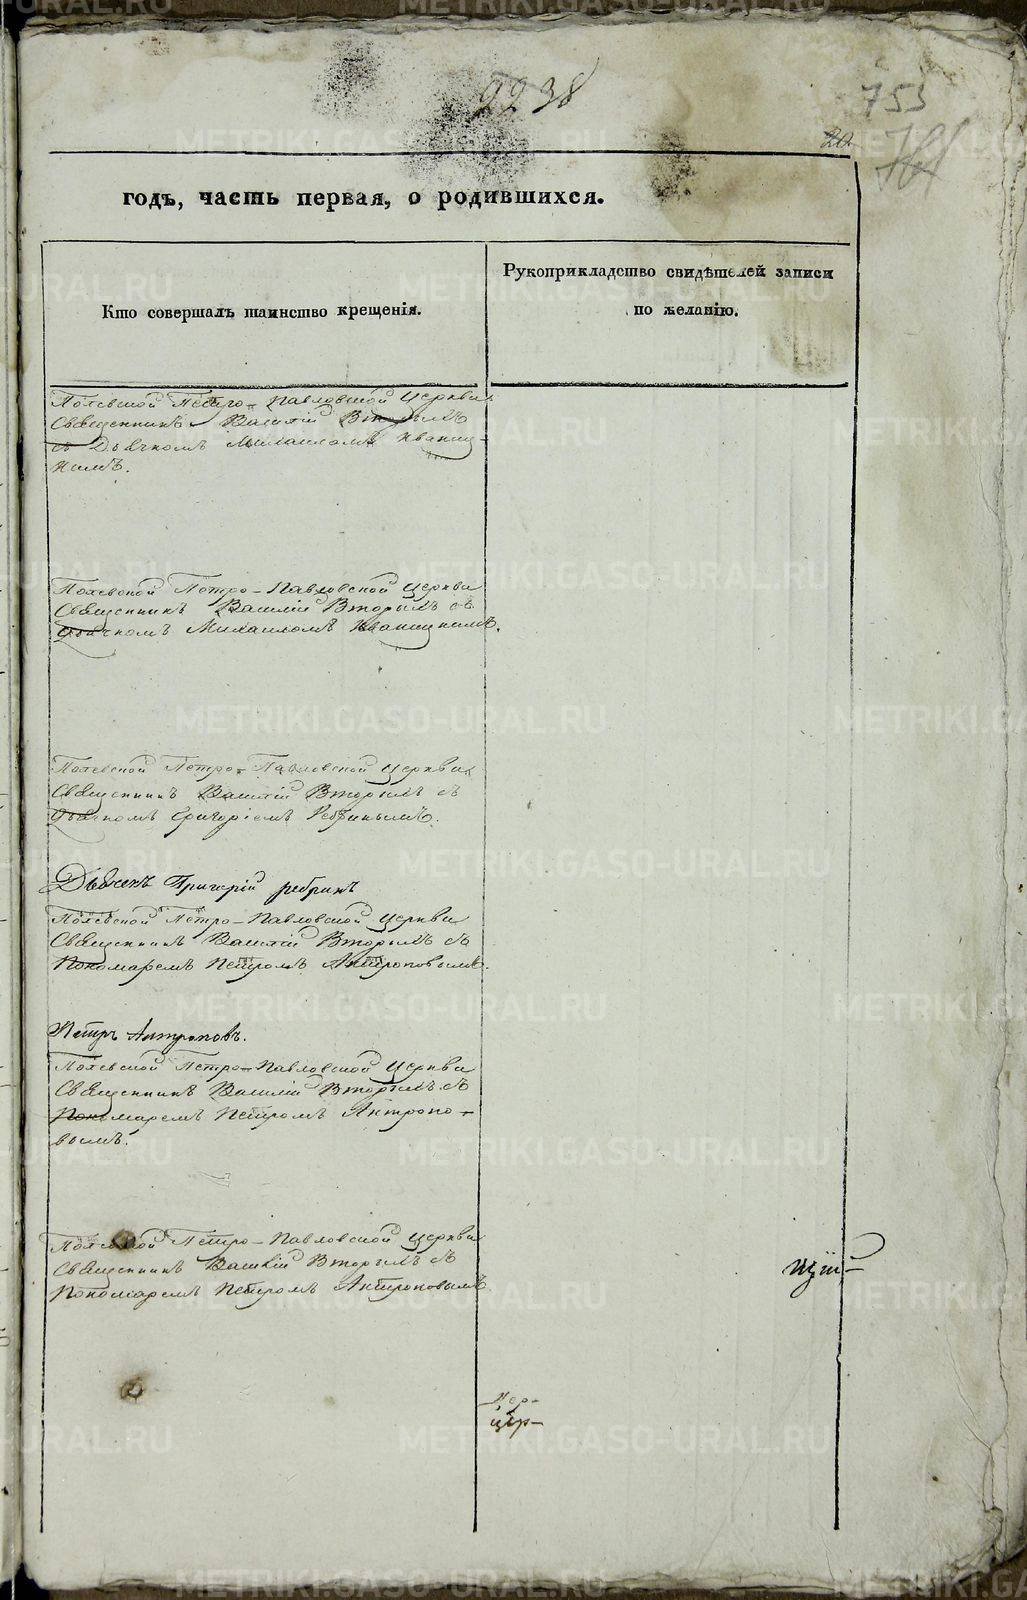 2238
753
20
годъ, часть первая, о родившихся.
Кто совершалъ таинство крещенія.
Рукоприкладство свидѣтелей записи
по желанію.
Полевской Петро-Павловской Церкви
Священникъ Василій Вторыхъ
съ Дьячкомъ Михаиломъ Иваниц-
кимъ.
Полевской Петро-Павловской Церкви
Священникъ Василій Вторыхъ съ
Дьячкомъ Михаиломъ Иваницкимъ.
Полевской Петро-Павловской Церкви
Священникъ Василій Вторыхъ съ
Дьячкомъ Григоріемъ Ребринымъ.
Дьячекъ Григорій ребринъ
Полевской Петро-Павловской Церкви
Священникъ Василій Вторыхъ съ
Пономаремъ Петромъ Антроповымъ.
Петръ Антроповъ.
Полевской Петро-Павловской Церкви
Священникъ Василій Вторыхъ съ
Пономаремъ Петромъ Антропо-
вымъ.
Полевской Петро-Павловской Церкви
Священникъ Василій Вторыхъ съ
Пономаремъ Петромъ Антроповымъ.
щій-
цер-
METRIKI.GASO-URAL.RU